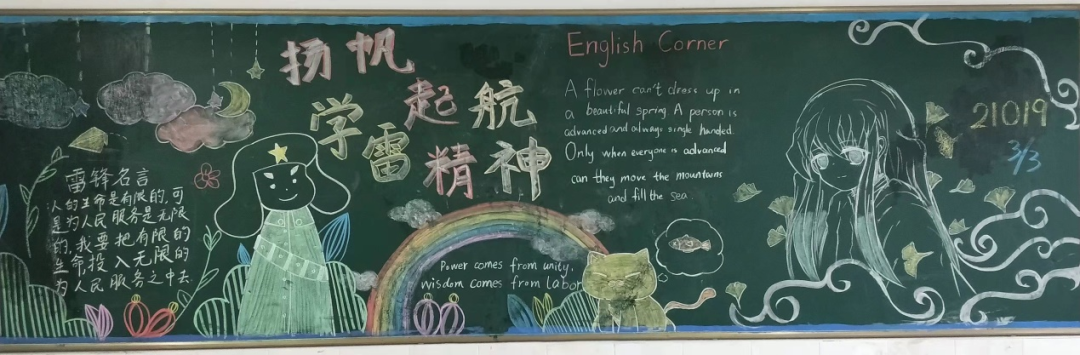 扬帆起航
学雷精神
雷锋名言
人的生命是有限的,可
是为人民服务是无限
的,我要把有限的
生命投入无限的
为人民服务之中去.
English Corner
A flower can't dress up in
a beautiful spring A person is
advanced and always single handed.
Only when everyone is advanced
can they move the mountains
and fill the sea.
Power comes from unity,
wisdom comes from labor
21019
3/3